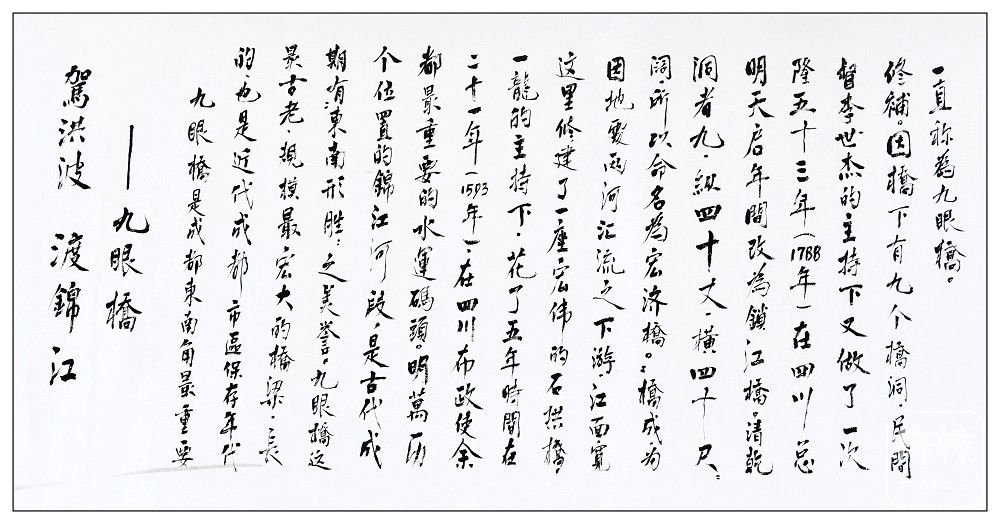 駕洪波 渡錦江
——九眼橋
九眼橋是成都東南角最重要
的,也是近代成都市區保存年代
最古老、規模最宏大的橋梁,長
期有東南形胜之美誉。九眼橋这
个位置的錦江河段,是古代成
都最重要的水運碼頭。明萬历
二十一年(1593年),在四川布政使余
一龍的主持下,花了五年時間在
这里修建了一座宏伟的石拱橋,
因地處两河汇流之下游,江面寬
阔,所以命名為宏济橋。橋成为
洞者九,纵四十丈,横四十尺。
明天启年間改為鎖江橋。清乾
隆五十三年(1788年)在四川总
督李世杰的主持下又做了一次
修補。因橋下有九个橋洞,民間
一直称為九眼橋。